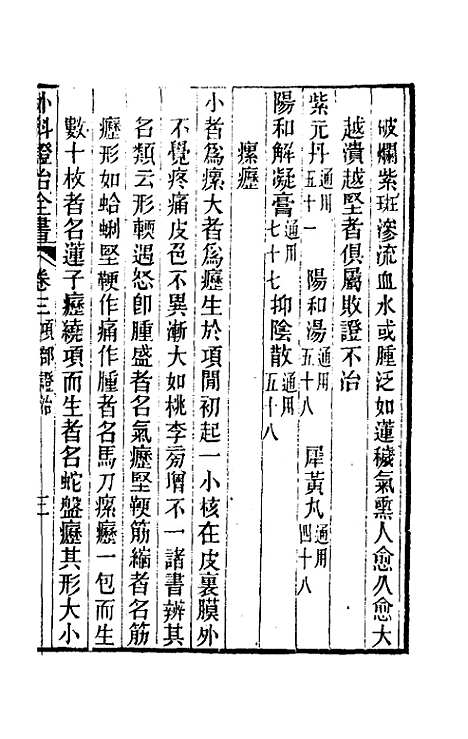 破爛紫斑滲流血水或腫泛如蓮穢氣熏人愈久愈大
越潰越堅者俱屬敗證不治
紫元丹通用五十一　陽和湯五十八　犀黃丸通用四十八
陽和解凝膏通用七十七　抑陰散通用五十八
瘰癧
小者爲瘰大者爲癧生於項閒初起一小核在皮裏膜外
不覺疼痛皮色不異漸大如桃李旁增不一諸書辨其
名類云形輭遇怒卽腫盛者名氣癧堅鞕筋縮者名筋
癧形如蛤蜊堅鞕作痛作腫者名馬刀瘰癧一包而生
數十枚者名蓮子癧繞項而生者名蛇盤癧其形大小
外科證治全書　卷三項部證治　三